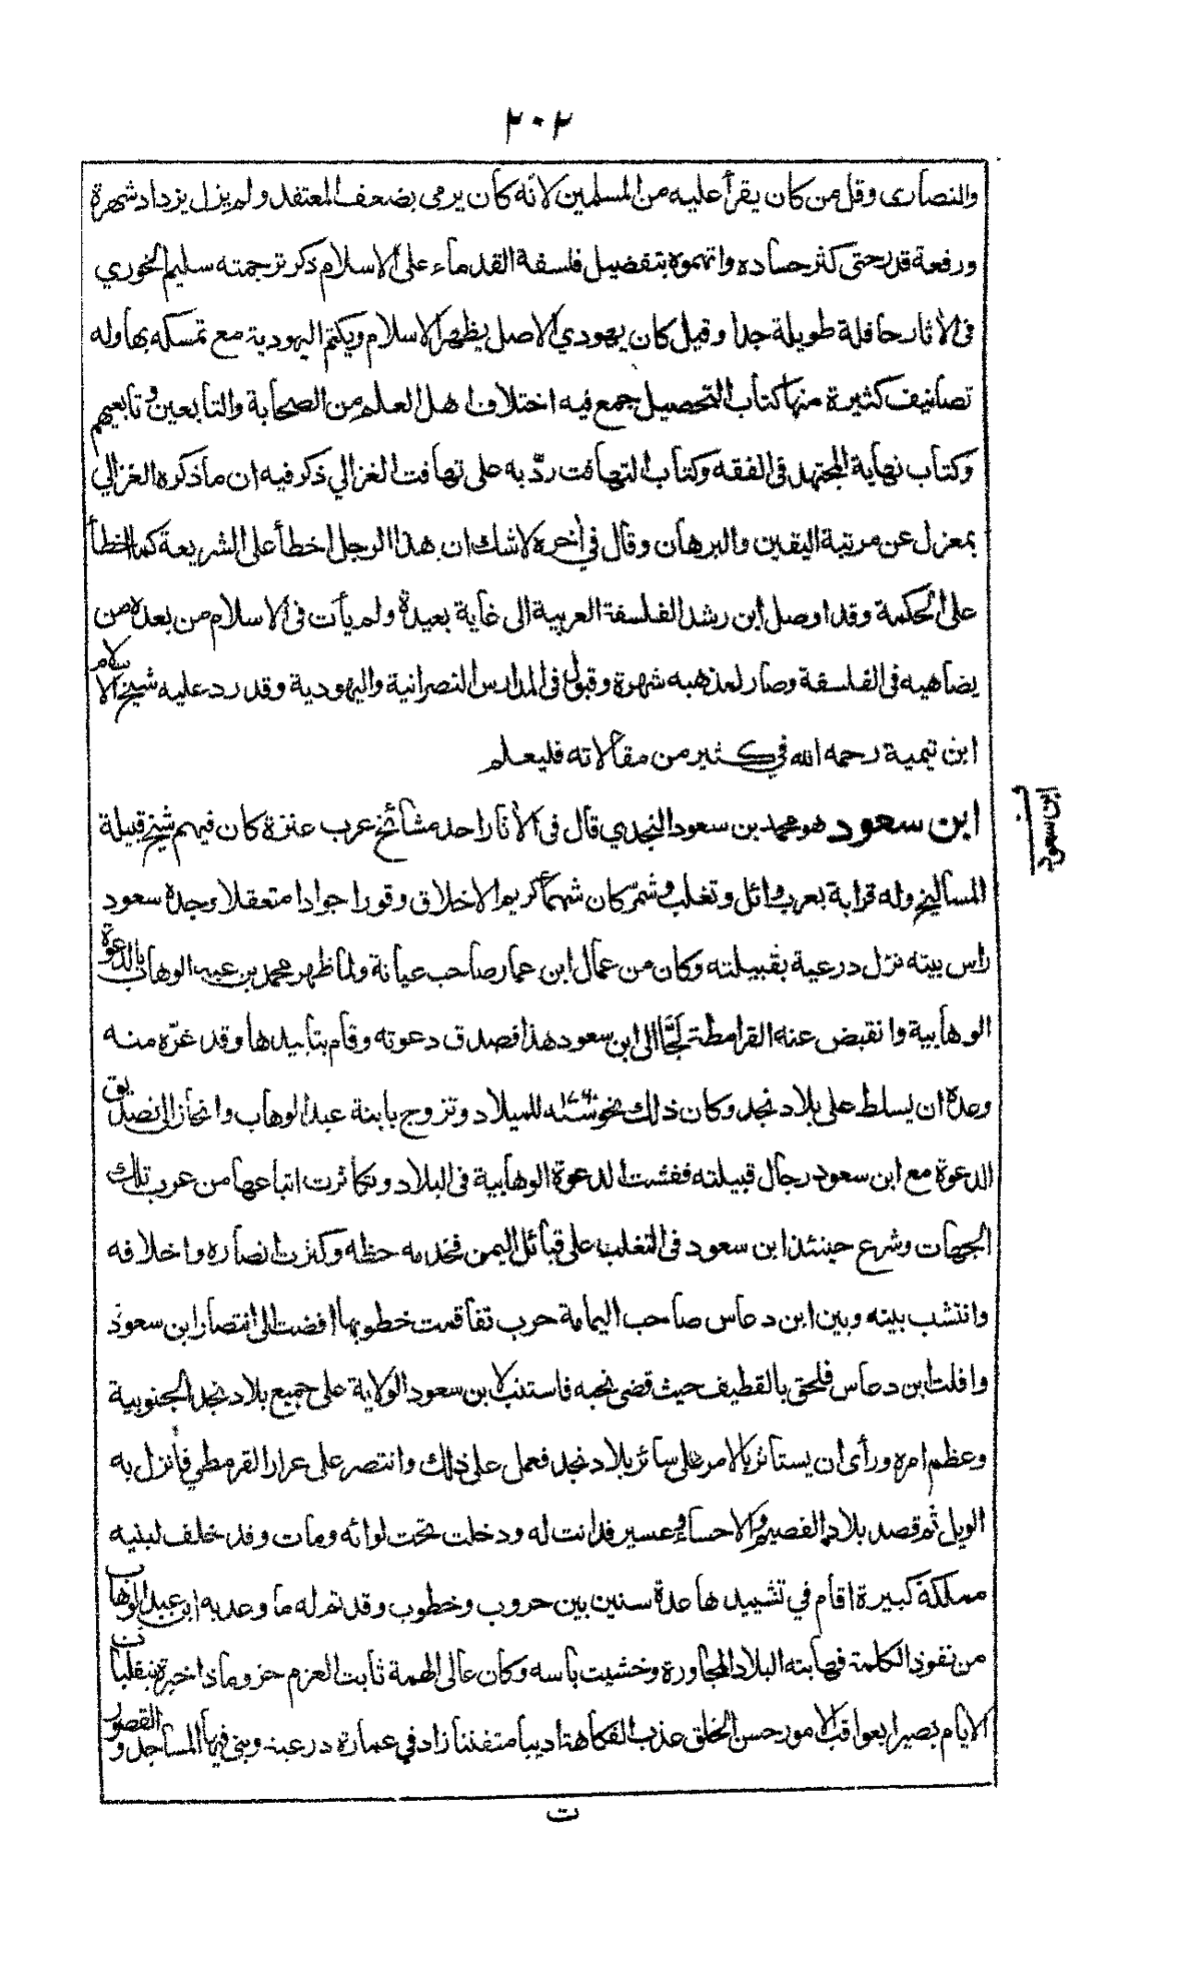 ٢٠٢
والنصارى وقل من كان يقرأ عليه من المسلمين لانه كان يرمى بضعف المعتقد ولم يزل يزداد شهرة
ورفعة قدر حتى كثر حساده واتهموه بتفضيل فلسفة القدماء على الاسلام ذكر ترجمته سليم الخوري
فى الأثار حافلة طويلة جدا وقيل كان يهودي الاصل يظهر الاسلام ويكتم اليهودية مع تمسكه بها وله
تصانيف كثيرة منها كتاب التحصيل جمع فيه اختلاف اهل العلم من الصحابة والتابعين وتابعيهم
وكتاب نهاية المجتهد فى الفقه وكتاب التهافت ردّ به على تهافت الغزالي ذكر فيه ان ما ذكره الغزالي
بمعزل عن مرتبة اليقين والبرهان وقال في أخره لا شك ان هذا الرجل اخطأ على الشريعة كما اخطأ
على الحكمة وقد اوصل ابن رشد الفلسفة العربية الى غاية بعيدة ولم يأت فى الاسلام من بعده من
يضاهيه فى الفلسفة وصار لمذهبه شهرة وقبول فى المدارس النصرانية واليهودية وقد رد عليه شيخ الاسلام
ابن تيمية رحمه الله في كثير من مقالاته فليعلم
ابن سعود هو محمد بن سعود النجدي قال فى الأثار احد مشائخ عرب عنزة كان فيهم شيخ قبيلة
المساليخ وله قرابة بعرب وائل وتغلب وشمّر كان شهماً كريم الاخلاق وقورا جوادا متعقلا وجده سعود
راس بيته نزل درعية بقبيلته وكان من عمال ابن عمار صاحب عيانة ولما ظهر محمد بن عبد الوهاب بالدعوة
الوهابية وانقبض عنه القرامطة لجّأ الى ابن سعود هذا فصدق دعوته وقام بتأييدها وقد غرّه منه
وعده ان يسلط على بلاد نجد وكان ذلك نحو سنة للميلاد وتزوج بابنة عبد الوهاب وانحاز الى تصديق
الدعوة مع ابن سعود رجال قبيلته ففشت الدعوة الوهابية فى البلاد وتكاثرت اتباعها من عرب تلك
الجهات وشرع حينئذ ابن سعود فى التغلب على قبائل اليمن فخدمه حظه وكثرت انصاره واخلافه
وانتشب بينه وبين ابن دعاس صاحب اليمامة حرب تفاقمت خطوبها افضت الى انتصار ابن سعود
وافلت ابن دعاس فلحق بالقطيف حيث قضى نحبه فاستتب لابن سعود الولاية على جميع بلاد نجد الجنوبية
وعظم امره ورأى ان يستاثر بالامر على سائر بلاد نجد فعمل على ذلك وانتصر على عرار القرمطي فأنزل به
الويل ثم قصد بلاد القصيم والاحساء وعسير فدانت له ودخلت تحت لوائه ومات وقد خلف لبنيه
مملكة كبيرة اقام في تشييدها عدة سنين بين حروب وخطوب وقد تم له ما وعد به ابن عبد الوهاب
من نفوذ الكلمة فهابته البلاد المجاورة وخشيت باسه وكان عالى الهمة ثابت العزم حزوما ذا خبرة بتقلبات
الايام بصيرا بعواقب الامور حسن الخلق عذب الفكاهة اديبا متفننا زاد في عمارة درعية وبنى فيها المساجد والقصور
ت
ف
ابن سعود